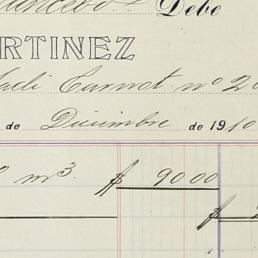 Debe
RTINEZ
Carnot nº 20
de Diciembre de 1910
m³ $ 90 00
$